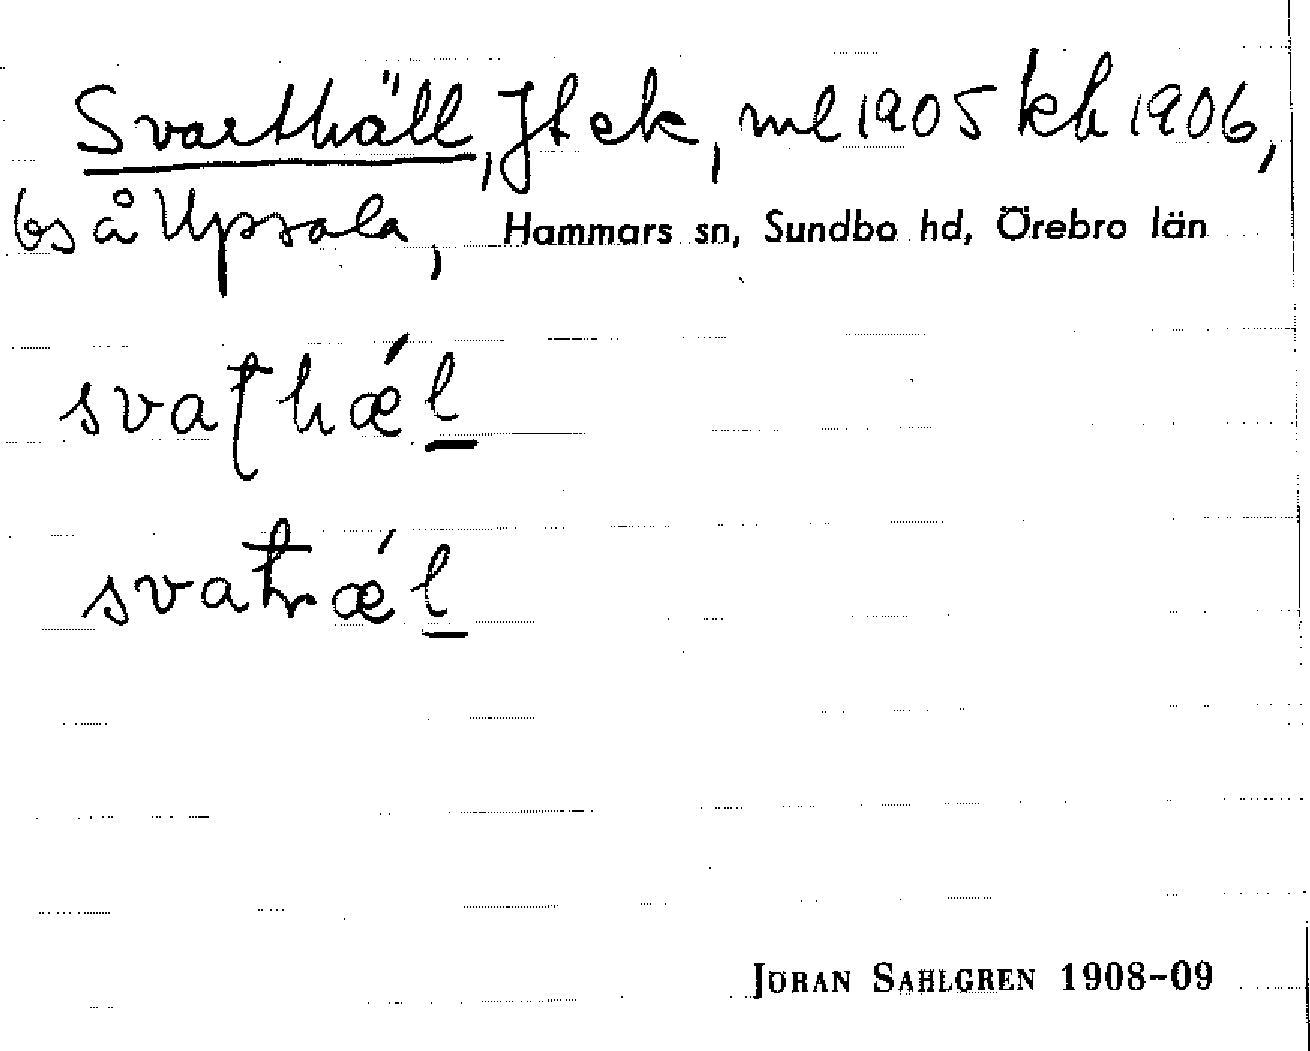 Svarthäll, Jt ek, ml 1905 kh 1906,
bs å Upsala, Hammars sn, Sundbo hd, Örebro län
svaʈhǽl
svatrǽl
JÖRAN SAHLGREN 1908-09